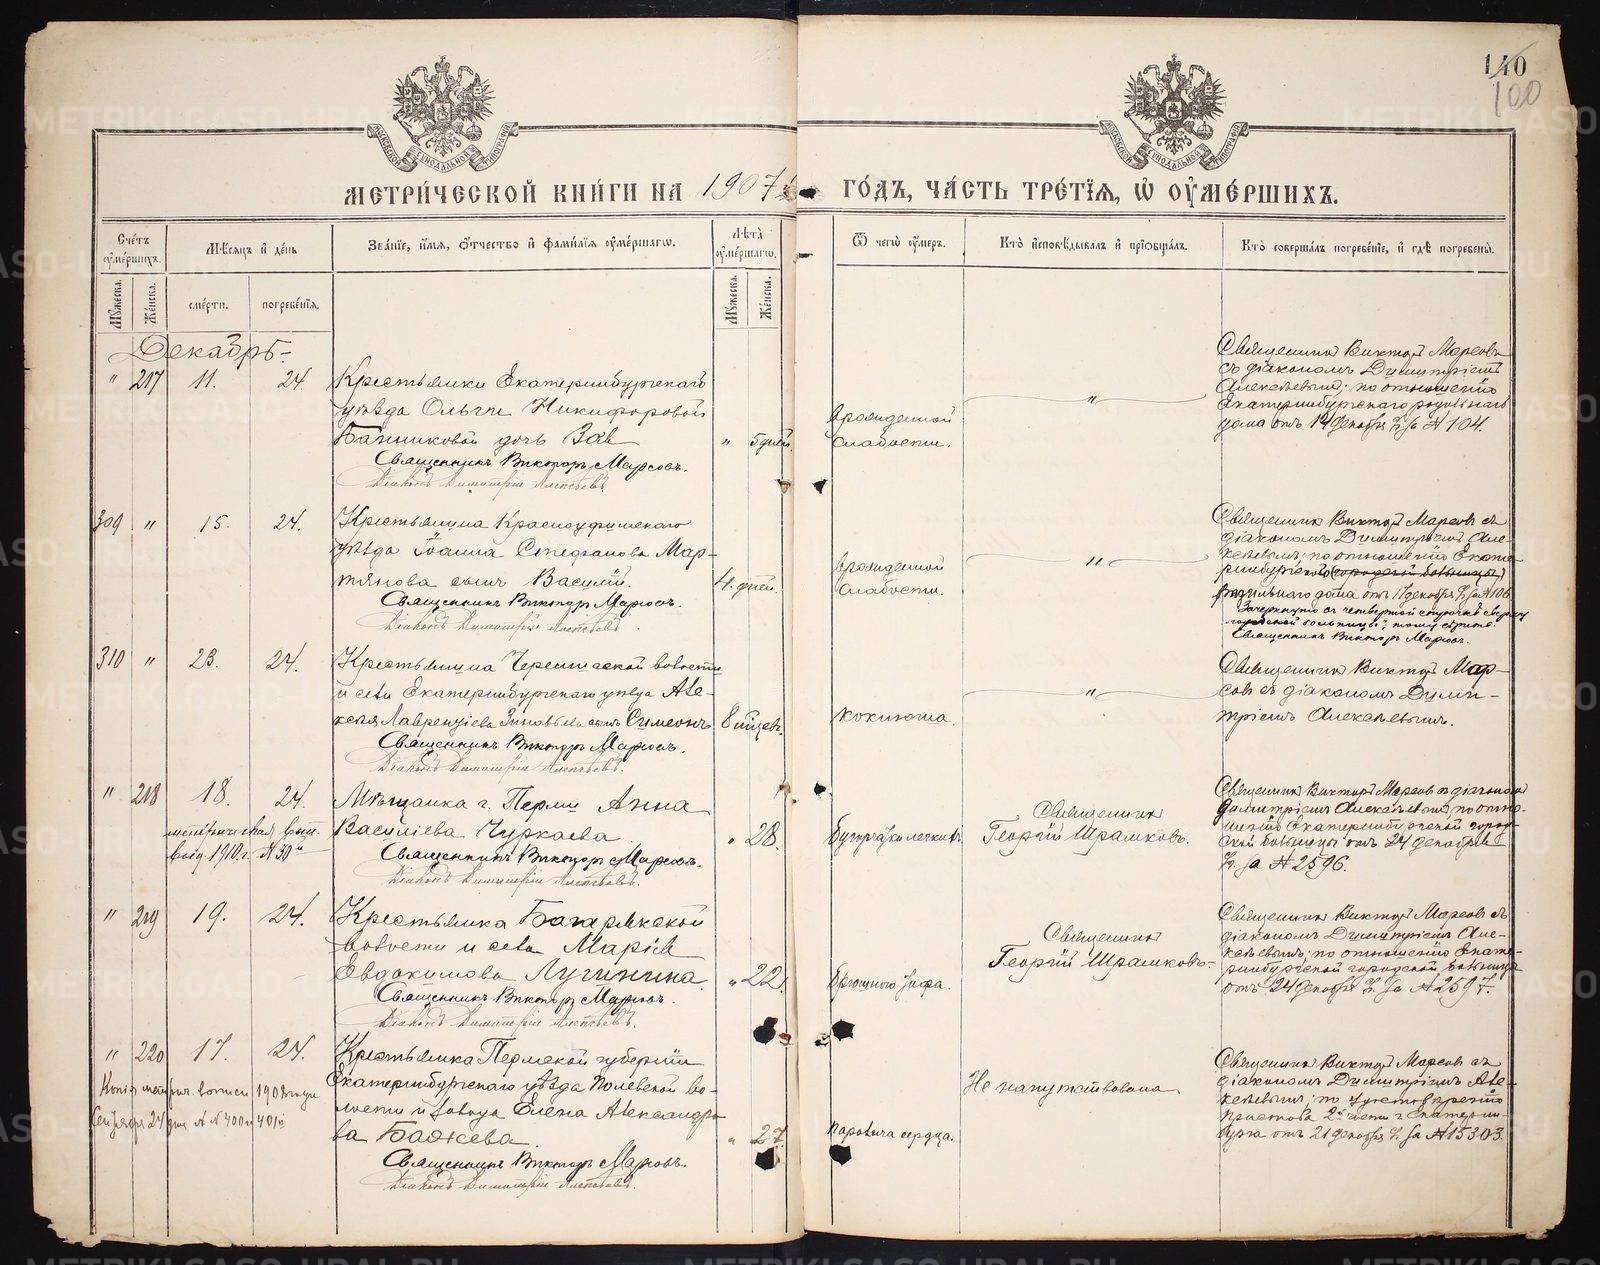 140
100
МЕТРИ́ЧЕСКОЙ КНИ́ГИ НА 1907
ГО́ДЪ, ЧА́СТЬ ТРЕ́ТІѦ, Ѡ҆ ОУ҆МЕ́РШИХЪ.
Сче́тъ оу҆ме́ршихъ.
Мѣ́сѧцъ и҆ де́нь
Зва́нїе, и҆́мѧ, ѻ҆́тчество и҆ фами́лїѧ оу҆ме́ршагѡ.
Лѣ́та оу҆ме́ршагѡ.
Ѿ чегѡ̀ оу҆́меръ.
Кто̀ и҆сповѣ́дывалъ и҆ прїѡбща́лъ.
Кто̀ соверша́лъ погребе́нїе, и҆ гдѣ̀ погребены̀.
Мꙋ́жеска.
Же́нска.
сме́рти.
погребе́нїѧ.
Мꙋ́жеска.
Же́нска.
Декабрь
" 217 11. 24.
Крестьянки Екатеринбургскаго
уѣзда Ольги Никифоровой
Банниковой дочь Зоя
Священникъ Викторъ Марсовъ.
Діаконъ Димитрій
" 5 дней.
врожденной
слабости.
"
Священникъ Викторъ Марсовъ
съ діакономъ Димитріемъ
Алексѣевымъ; по отношенію
Екатеринбургскаго родильнаго
дома отъ 19 декабря за № 104.
309 " 15. 24.
Крестьянина Красноуфимскаго
уѣзда Іоанна Стефанова Мар-
тянова сынъ Василій.
Священникъ Викторъ Марсовъ.
Діаконъ Димитрій
4 дней.
врожденной
слабости.
"
Священникъ Викторъ Марсовъ съ
діакономъ Димитріемъ Але-
ксѣевымъ; по отношенію Екате-
ринбургской (городской больницы)
родильнаго дома отъ декабря за № 106
Зачеркнуто въ четвертой строчкѣ сверху
городской больницы;
Священникъ Викторъ Марсовъ.
310 " 23. 24.
Крестьянина волости
и села Екатеринбургскаго уѣзда Але-
ксѣя Лаврентіева Зиновьева сынъ Симеонъ
Священникъ Викторъ Марсовъ.
Діаконъ Димитрій
8 мѣсяцев.
коклюша.
"
Священникъ Викторъ Мар-
совъ съ діакономъ Дими-
тріемъ Алексѣевымъ.
" 218 18. 24.
1910 г. № 30
Мѣщанка г. Перми Анна
Василіева Чуркаева
Священникъ Викторъ Марсовъ.
Діаконъ Димитрій
" 28.
Бугорчатки легкихъ
Священникъ
Георгій Шрамковъ.
Священникъ Викторъ Марсовъ съ діакономъ
Димитріемъ Алексѣевымъ; по отно-
шенію Екатеринбургской город-
ской больницы отъ 24 декабря
за № 2596.
" 219 19. 24.
Крестьянка Багарякской
волости и села Марія
Евдокимова Лугинина.
Священникъ Викторъ Марсовъ.
Діаконъ Димитрій
" 22.
Брюшного тифа.
Священникъ
Георгій Шрамковъ.
Священникъ Викторъ Марсовъ съ
діакономъ Димитріемъ Але-
ксѣевымъ; по отношенію Екате-
ринбургской городской больницы
отъ 24 декабря за № 2597.
" 220 17. 24.
Сентября 24 дня № № 400 и 401
Крестьянка Пермской губерніи
Екатеринбургскаго уѣзда Полевской во-
лости и завода Елена Александро-
ва Бажева.
Священникъ Викторъ Марсовъ.
Діаконъ Димитрій
" 27.
паралича сердца.
Не напутствована
Священникъ Викторъ Марсовъ съ
діакономъ Димитріемъ Але-
ксѣевымъ; по
пристава 2й части г. Екатерин-
бурга отъ 21 декабря за № 15303.